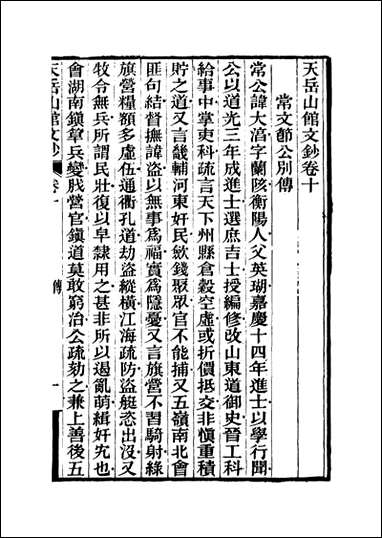 天岳山館文鈔卷十
常文節公別傳
常公諱大淳字蘭陔衡陽人父英瑚嘉慶十四年進士以學行聞
公以道光三年成進士選庶吉士授編修改山東道御史晉工科
給事中掌吏科疏言天下州縣倉穀空虛或折價抵交非慎重積
貯之道又言畿輔河東奸民斂錢聚眾官不能捕又五嶺南北會
匪句結督撫諱盜以無事為福實為隱憂又言旗營不習騎射綠
旗營糧額多虛伍通衢孔道劫盜縱橫江海疏防盜艇恣出沒又
牧令無兵所謂民壯復以皁隸用之甚非所以遏亂萌緝奸宄也
會湖南鎮筸兵變戕營官鎮道莫敢窮治公疏劾之兼上善後五
天岳山館文鈔
卷十
傳
一